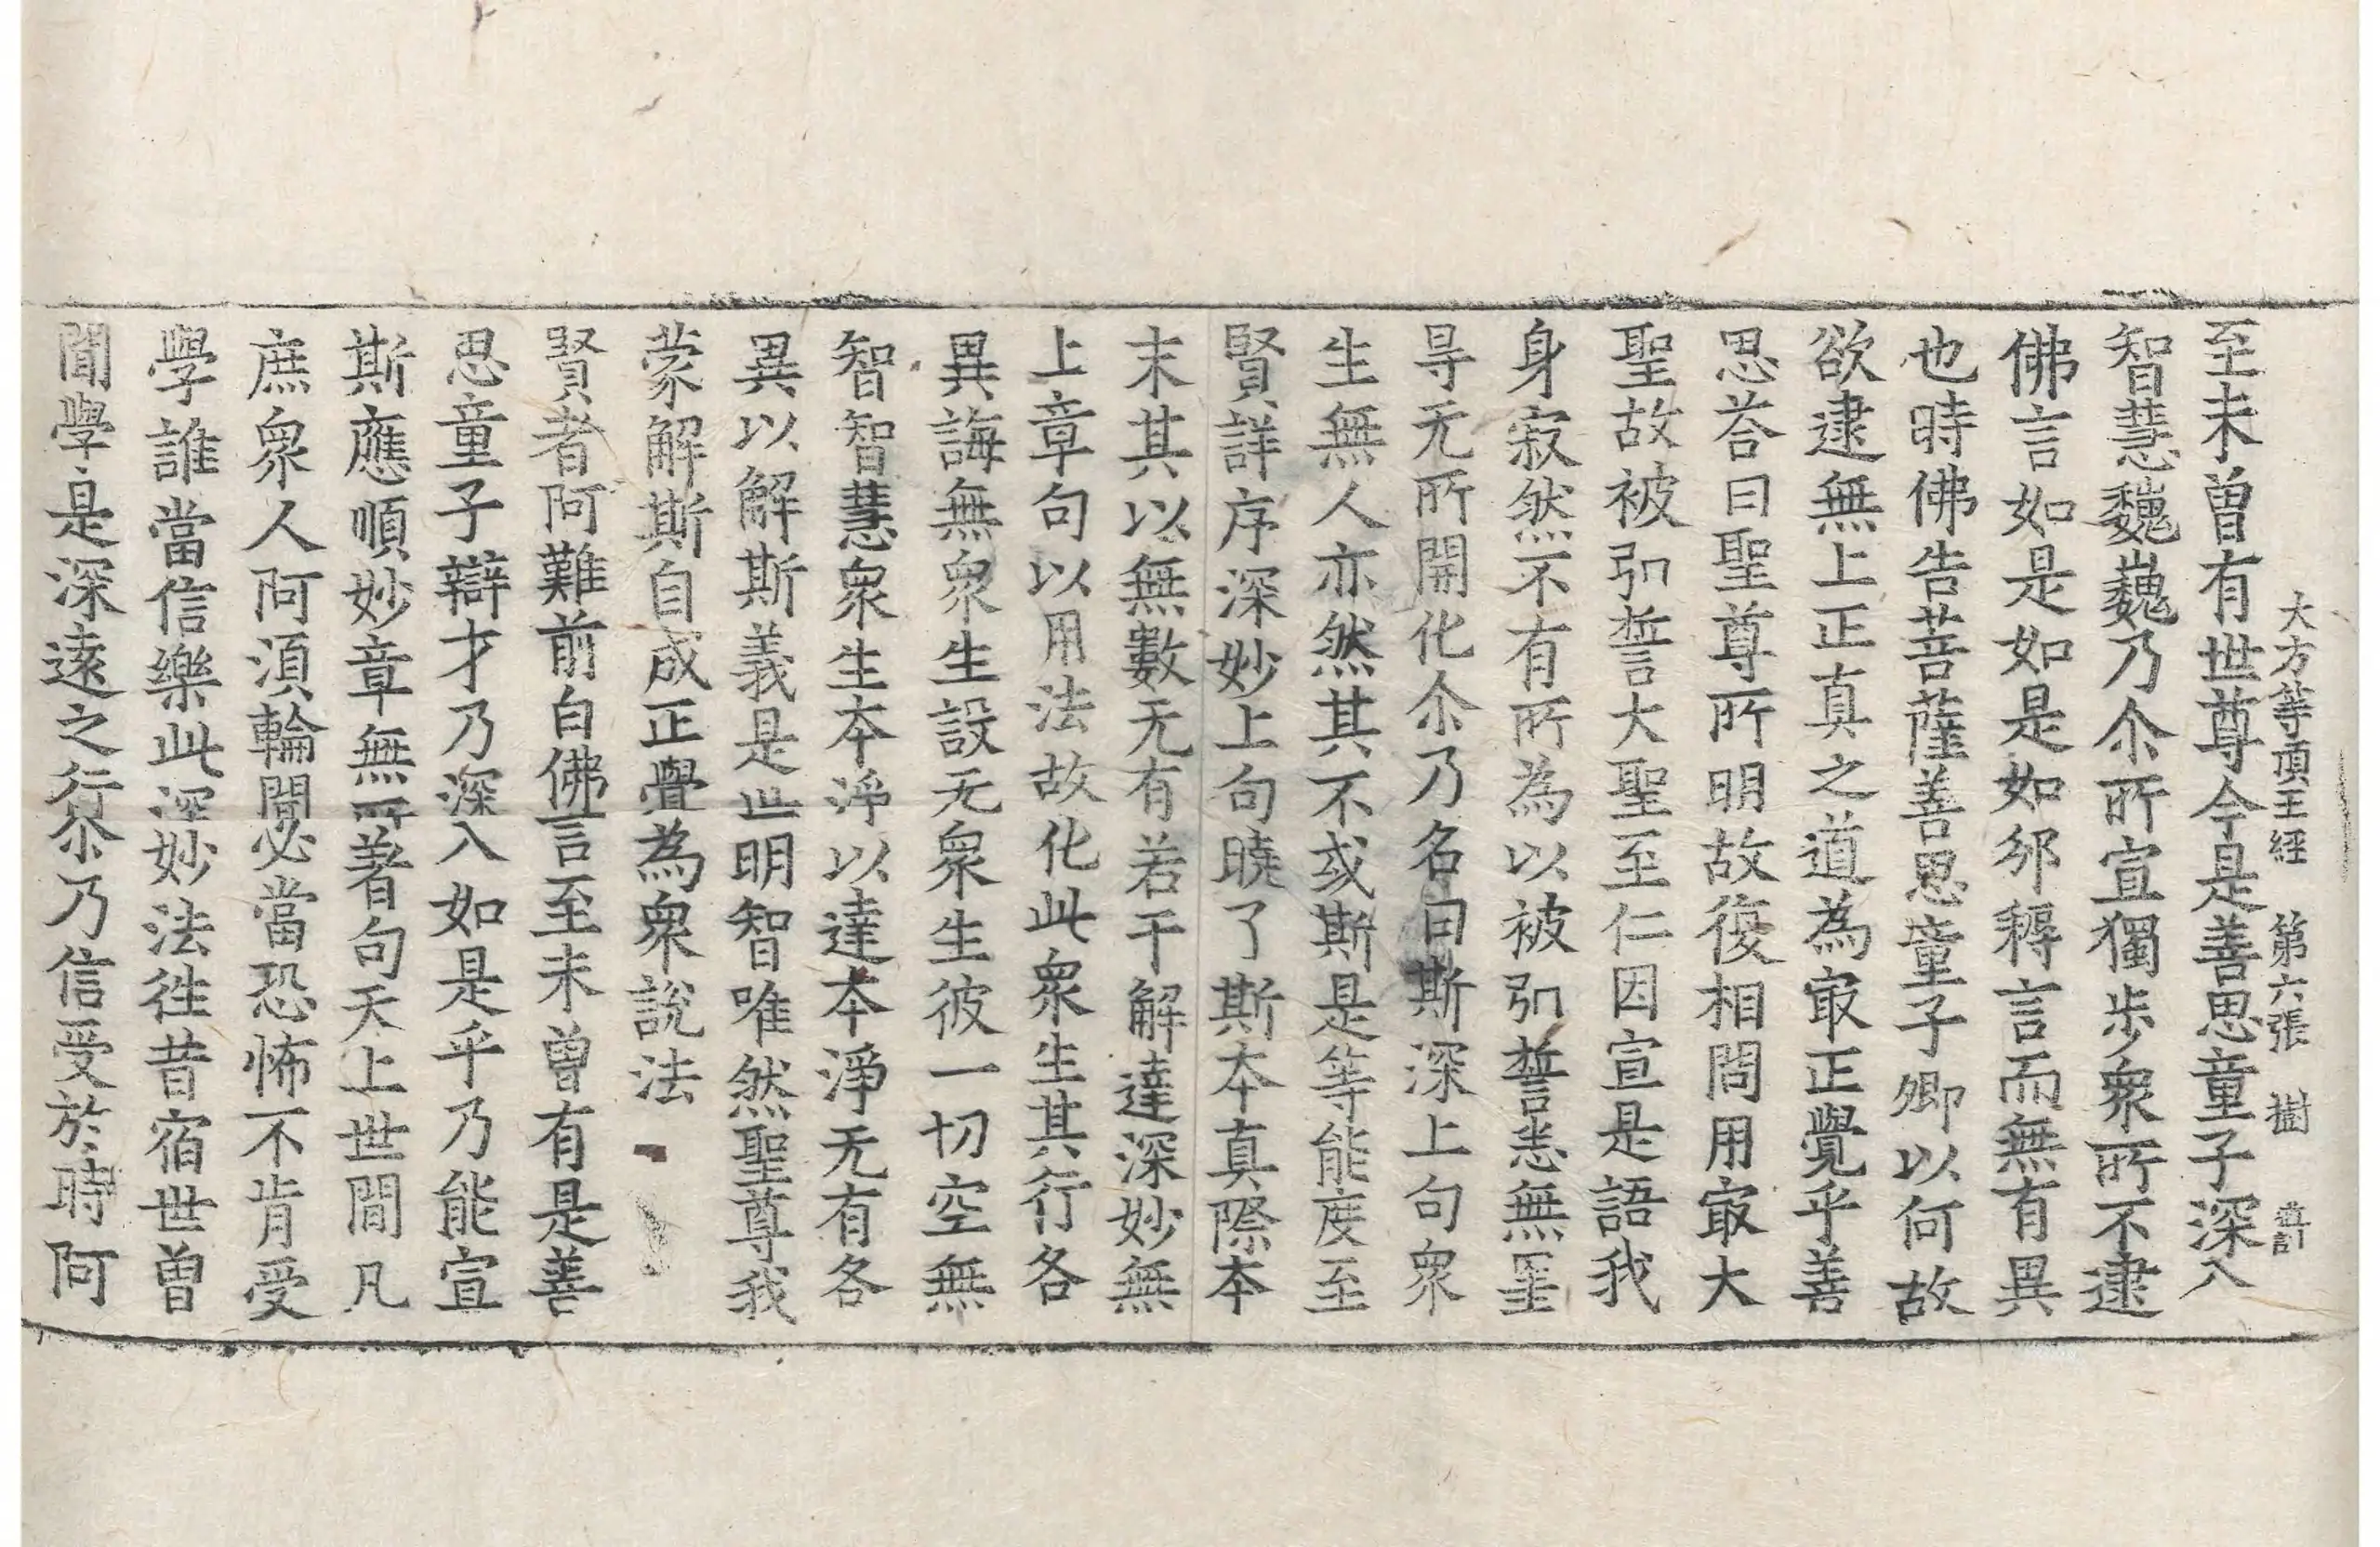 大方等頂王經　第六張　樹
至未曽有世尊今是善思童子深入
智慧巍巍乃尒所宣獨步衆所不逮
佛言如是如是如卿稱言而無有異
也時佛告菩薩善思童子卿以何故
欲逮無上正真之道為㝡正覺乎善
思荅曰聖尊所明故復相問用㝡大
聖故被弘誓大聖至仁因宣是語我
身寂然不有所為以被弘誓恚無罣
㝵无所開化尒乃名曰斯深上句衆
生無人亦然其不或斯是等能度至
賢詳序深妙上句曉了斯本真際本
末其以無數无有若干解達深妙無
上章句以用法故化此衆生其行各
異誨無衆生設无衆生彼一切空無
智智慧衆生本淨以達本淨无有各
異以解斯義是世明智唯然聖尊我
蒙解斯自成正覺為衆說法
賢者阿難前白佛言至未曽有是善
思童子辯才乃深入如是乎乃能宣
斯應順妙章無所著句天上世間凡
庶衆人阿湏輪聞必當恐怖不肯受
學誰當信樂此深妙法徃昔宿世曽
聞學是深遠之行尒乃信受於時阿